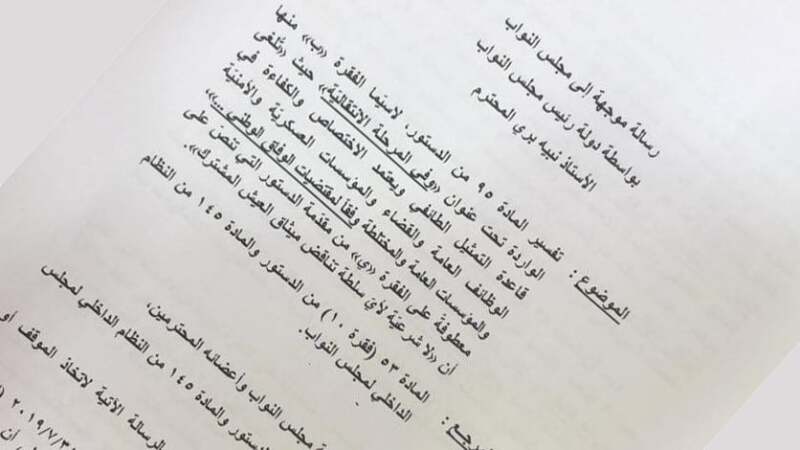 رسالة موجهة إلى مجلس النواب
بواسطة دولة رئيس مجلس النواب
الأستاذ نبيه بري المحترم
الموضوع : تفسير المادة ٩٥ من الدستور، لاسيّما الفقرة «ب» منها
الواردة تحت عنوان «وفي المرحلة الانتقالية» حيث «تُلغى
قاعدة التمثيل الطائفي ويعتمد الاختصاص والكفاءة في
الوظائف العامة والقضاء والمؤسسات العسكريّة والأمنيّة
والمؤسسات العامة والمختلطة وفقاً لمقتضيات الوفاق الوطني ...»،
معطوفة على الفقرة «ي» من مقدّمة الدستور التي تنص على
أن «لا شرعيّة لأيّ سلطة تناقض ميثاق العيش المشترك».
المادة ٥٣ (فقرة ١٠) من الدستور والمادة ١٤٥ من النظام
الداخلي لمجلس النواب.
مجلس النواب وأعضائه المحترمين،
والمادة ١٤٥ من النظام الداخلي لمجلس
الرسالة الآتية لاتخاذ الموقف أو